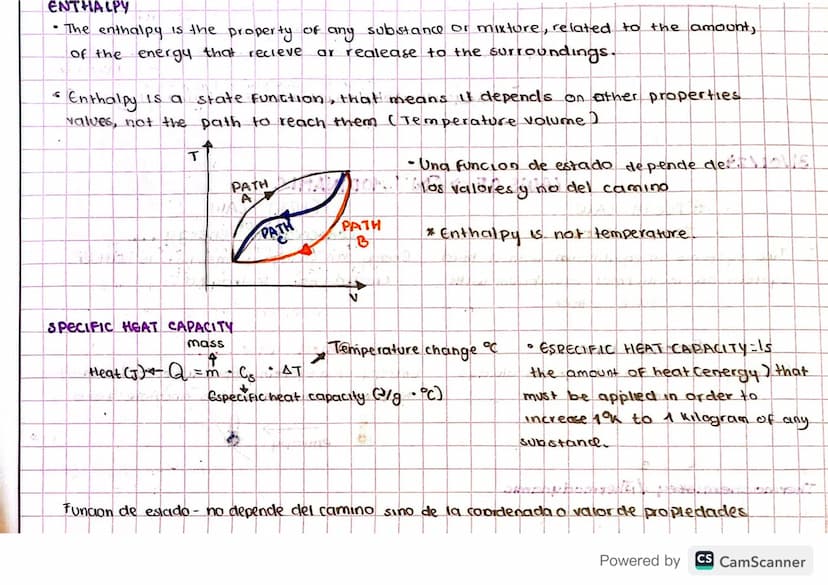 ENTHALPY
• The enthalpy is the property of any substance or mixture, related to the amount,
of the energy that recieve or realease to the surroundings.
* Enthalpy is a state function, that means it depends on other properties
values, not the path to reach them (Temperature volume)
T
PATH
A
PATH
C
PATH
B
V
- Una funcion de estado depende de
los valores y no del camino
* Enthalpy is not temperature.
SPECIFIC HEAT CAPACITY
mass
Temperature change °C
Heat (J) ← Q = m · Cs · ΔT
Especific heat capacity (J/g · °C)
• ESPECIFIC HEAT CAPACITY = Is
the amount of heat (energy) that
must be applied in order to
increase 1°K to 1 kilogram of any
substance.
Funcion de estado - no depende del camino sino de la coordenada o valor de propiedades
Powered by CS CamScanner